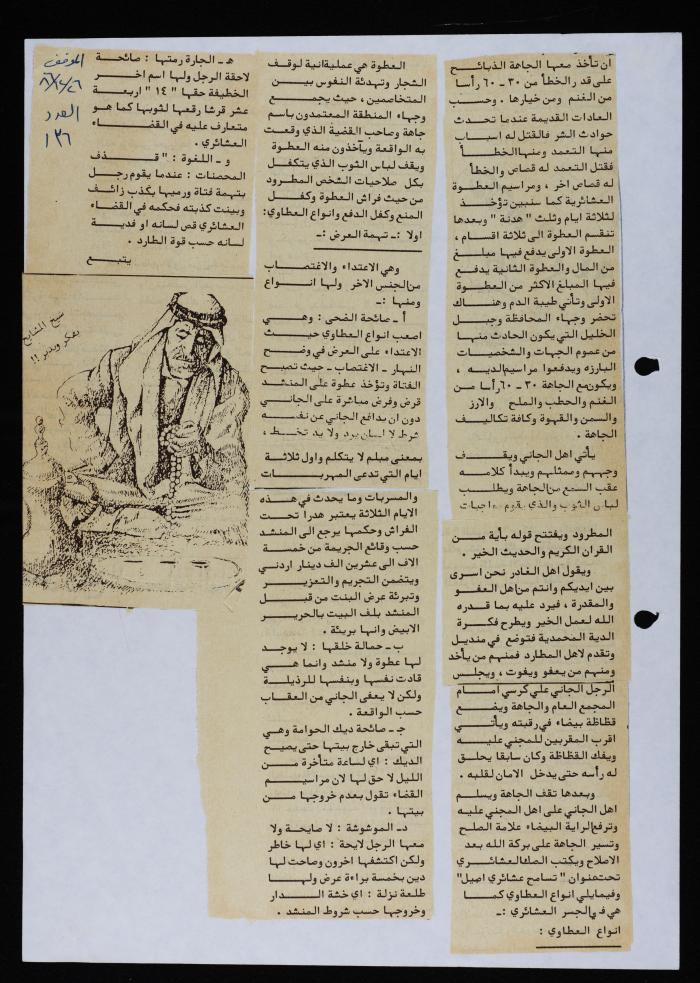 ان تأخذ معها الجاهة الذبائح
على قدر الخطأ من ٣٠ - ٦٠ رأسا
من الغنم ومن خيارها . وحسب
العادات القديمة عندما تحدث
حوادث الشر فالقتل له اسباب
منها التعمد ومنها الخطأ
فقتل التعمد له قصاص والخطأ
له قصاص اخر ، ومراسيم العطوة
العشائرية كما سنبين تؤخذ
لثلاثة ايام وثلث " هدنة " وبعدها
تنقسم العطوة الى ثلاثة اقسام ،
العطوة الاولى يدفع فيها مبلغ
من المال والعطوة الثانية يدفع
فيها المبلغ الاكثر من العطوة
الاولى وتأتي طيبة الدم وهناك
تحضر وجهاء المحافظة وجبل
الخليل التي يكون الحادث منها
من عموم الجهات والشخصيات
البارزه ويدفعوا مراسيم الديه ،
ويكون مع الجاهة ٣٠ - ٦٠ رأسا من
الغنم والحطب والملح والارز
والسمن والقهوة وكافة تكاليف
الجاهة .
يأتي اهل الجاني ويقف
وجههم وممثلهم ويبدأ كلامه
عقب السمع من الجاهة ويطلب
لباس الثوب والذي يقوم بواجبات
المطرود ويفتتح قوله بأية من
القران الكريم والحديث الخير .
ويقول اهل الغادر نحن اسرى
بين ايديكم وانتم من اهل العفو
والمقدرة ، فيرد عليه بما قدره
الله لعمل الخير ويطرح فكرة
الدية المحمدية فتوضع في منديل
وتقدم لاهل المطارد فمنهم من يأخذ
ومنهم من يعفو ويفوت ، ويجلس
الرجل الجاني على كرسي امام
المجمع العام والجاهة ويضع
قظاظة بيضاء في رقبته ويأتي
اقرب المقربين للمجني عليه
ويفك القظاظة وكان سابقا يحلق
له رأسه حتى يدخل الامان لقلبه .
وبعدها تقف الجاهة ويسلم
اهل الجاني على اهل المجني عليه
وترفع الراية البيضاء علامة الصلح
وتسير الجاهة على بركة الله بعد
الاصلاح ويكتب الصك العشائري
تحت عنوان " تسامح عشائري اصيل "
وفيما يلي انواع العطاوي كما
هي في الجسر العشائري :-
انواع العطاوي :
العطوة هي عملية انية لوقف
الشجار وتهدئة النفوس بين
المتخاصمين ، حيث يجمع
وجهاء المنطقة المعتمدون باسم
جاهة وصاحب القضية الذي وقعت
به الواقعة ويأخذون منه العطوة
ويقف لباس الثوب الذي يتكفل
بكل صلاحيات الشخص المطرود
من حيث فراش العطوة وكفل
المنع وكفل الدفع وانواع العطاوي:
اولا :- تهمة العرض :-
وهي الاعتداء والاغتصاب
من الجنس الاخر ولها انواع
ومنها :-
أ - صائحة الضحى : وهي
اصعب انواع العطاوي حيث
الاعتداء على العرض في وضح
النهار - الاغتصاب - حيث تصبح
الفتاة وتؤخذ عطوة على المنشد
قرض وفرض مباشرة على الجاني
دون ان يدافع الجاني عن نفسه
شرط لا لسان يرد ولا يد تخط ،
بمعنى مبلم لا يتكلم واول ثلاثة
ايام التي تدعى المهربات
والمسربات وما يحدث في هذه
الايام الثلاثة يعتبر هدرا تحت
الفراش وحكمها يرجع الى المنشد
حسب وقائع الجريمة من خمسة
الاف الى عشرين الف دينار اردني
ويتضمن التجريم والتعزير
وتبرئة عرض البنت من قبل
المنشد بلف البيت بالحرير
الابيض وانها بريئة .
ب - حمالة خلقها : لا يوجد
لها عطوة ولا منشد وانما هي
قادت نفسها وبنفسها للرذيلة
ولكن لا يعفى الجاني من العقاب
حسب الواقعة .
جـ - صائحة ديك الحوامة وهي
التي تبقى خارج بيتها حتى يصيح
الديك : اي لساعة متأخرة من
الليل لا حق لها لان مراسيم
القضاء تقول بعدم خروجها من
بيتها .
د- الموشوشة : لا صايحة ولا
معها الرجل لايحة : اي لها خاطر
ولكن اكتشفها اخرون وصاحت لها
دين بخمسة براءة عرض ولها
طلعة نزلة : اي خشة الدار
وخروجها حسب شروط المنشد .
هـ - الجارة رمتها : صائحة
لاحقة الرجل ولها اسم اخر
الخطيفة حقها " ١٤ " اربعة
عشر قرشا رقعها لثوبها كما هو
متعارف عليه في القضاء
العشائري .
و - اللغوة : " قذف
المحصنات : عندما يقوم رجل
بتهمة فتاة ورميها بكذب زائف
وبينت كذبته فحكمه في القضاء
العشائري قص لسانه او فدية
لسانه حسب قوة الطارد .
يتبع
الموقف
العدد
١٣٦
شيخ المشايخ
يفكر ويدبر !!